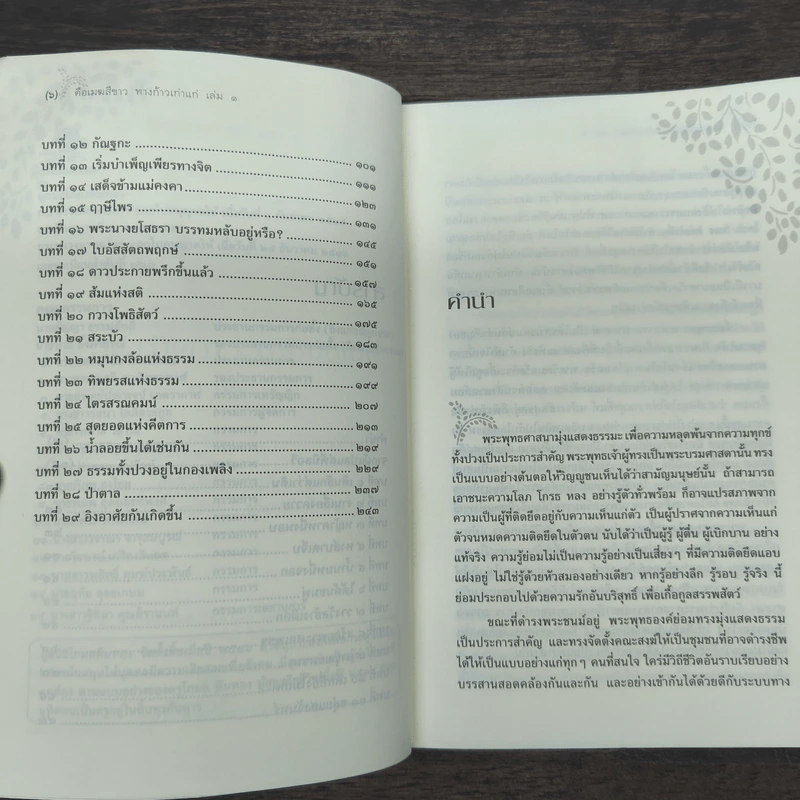 (๖) คือเมฆสีขาว ทางก้าวเก่าแก่ เล่ม ๑
บทที่ ๑๒ กัณฐกะ ........................................ ๑๐๑
บทที่ ๑๓ เริ่มบำเพ็ญเพียรทางจิต ........................................ ๑๑๑
บทที่ ๑๔ เสด็จข้ามแม่คงคา ........................................ ๑๒๓
บทที่ ๑๕ ฤๅษีไพร ........................................ ๑๓๑
บทที่ ๑๖ พระนางยโสธรา บรรทมหลับอยู่หรือ? ........................................ ๑๔๕
บทที่ ๑๗ ใบอัสสัตถพฤกษ์ ........................................ ๑๕๑
บทที่ ๑๘ ดาวประกายพรึกขึ้นแล้ว ........................................ ๑๕๗
บทที่ ๑๙ ส้มแห่งสติ ........................................ ๑๖๕
บทที่ ๒๐ กวางโพธิสัตว์ ........................................ ๑๗๕
บทที่ ๒๑ สระบัว ........................................ ๑๘๓
บทที่ ๒๒ หมุนกงล้อแห่งธรรม ........................................ ๑๙๑
บทที่ ๒๓ ทิพยรสแห่งธรรม ........................................ ๑๙๙
บทที่ ๒๔ ไตรสรณคมน์ ........................................ ๒๐๗
บทที่ ๒๕ สุดยอดแห่งคีตการ ........................................ ๒๑๓
บทที่ ๒๖ น้ำลอยขึ้นได้เช่นกัน ........................................ ๒๑๙
บทที่ ๒๗ ธรรมทั้งปวงอยู่ในกองเพลิง ........................................ ๒๒๙
บทที่ ๒๘ ป่าตาล ........................................ ๒๓๗
บทที่ ๒๙ อิงอาศัยกันเกิดขึ้น ........................................ ๒๔๓
คำนำ
พระพุทธศาสนามุ่งแสดงธรรมะ เพื่อความหลุดพ้นจากความทุกข์
ทั้งปวงเป็นประการสำคัญ พระพุทธเจ้าผู้ทรงเป็นพระบรมศาสดานั้น ทรง
เป็นแบบอย่างต้นตอให้วิญญูชนเห็นได้ว่าสามัญมนุษย์นั้น ถ้าสามารถ
เอาชนะความโลภ โกรธ หลง อย่างรู้ตัวทั่วพร้อม ก็อาจแปรสภาพจาก
ความเป็นผู้ที่ติดยึดอยู่กับความเห็นแก่ตัว เป็นผู้ปราศจากความเห็นแก่
ตัวจนหมดความติดยึดในตัวตน นับได้ว่าเป็นผู้รู้ ผู้ตื่น ผู้เบิกบาน อย่าง
แท้จริง ความรู้ย่อมไม่เป็นความรู้อย่างเป็นเสี่ยงๆ ที่มีความติดยึดแอบ
แฝงอยู่ ไม่ใช่รู้ด้วยหัวสมองอย่างเดียว หากรู้อย่างลึก รู้รอบ รู้จริง นี้
ย่อมประกอบไปด้วยความรักอันบริสุทธิ์ เพื่อเกื้อกูลสรรพสัตว์
ขณะที่ดำรงพระชนม์อยู่ พระพุทธองค์ย่อมทรงมุ่งแสดงธรรม
เป็นประการสำคัญ และทรงจัดตั้งคณะสงฆ์ให้เป็นชุมชนที่อาจดำรงชีพ
ได้ให้เป็นแบบอย่างแก่ทุกๆ คนที่สนใจ ใคร่มีวิถีชีวิตอันราบเรียบอย่าง
บรรสานสอดคล้องกันและกัน และอย่างเข้ากันได้ด้วยดีกับระบบทาง